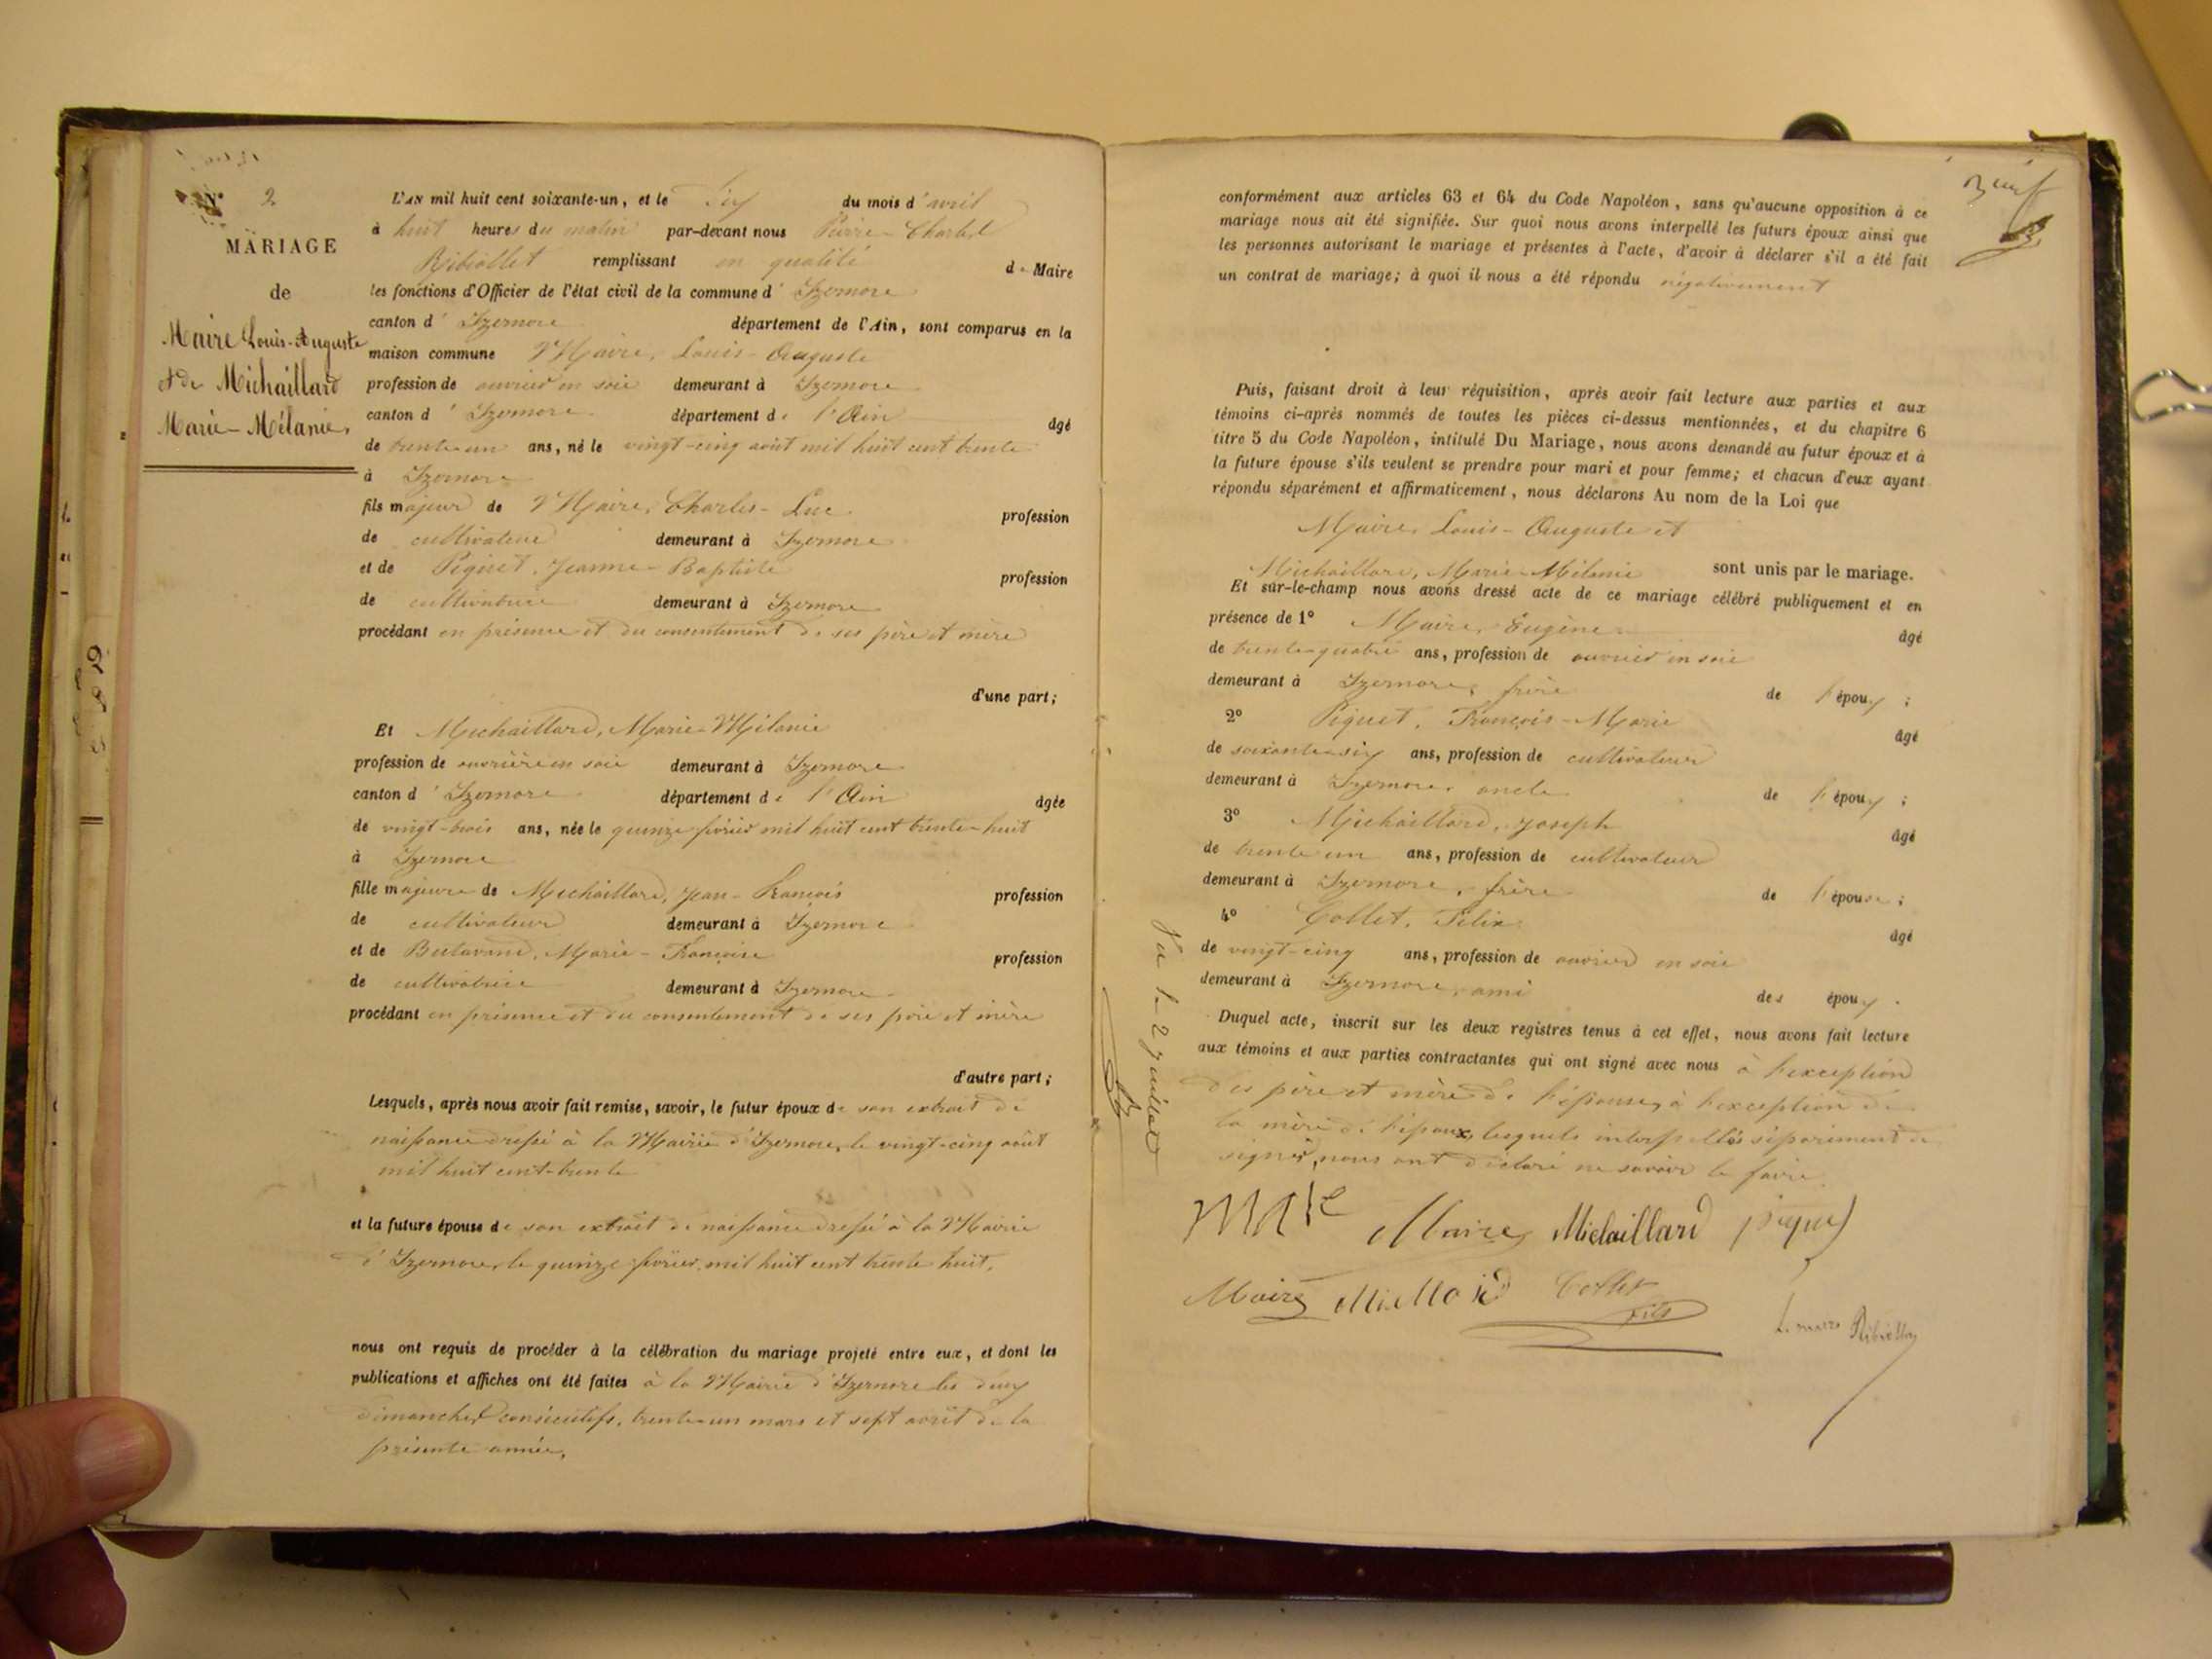 N° 2
MARIAGE
de
Maire Louis-Auguste
et de Michaillard
Marie-Mélanie,
L'AN mil huit cent soixante-un, et le du mois d'avril
à huit heures du matin par-devant nous Pierre-Charles
Ribiollet remplissant en qualité de Maire
les fonctions d'Officier de l'état civil de la commune d'Izernore
canton d'Izernore département de l'Ain, sont comparus en la
maison commune Maire, Louis-Auguste
profession de ouvrier en soie demeurant à Izernore
canton d'Izernore département de l'Ain âgé
de trente-un ans, né le vingt-cinq août mil huit cent trente
à Izernore
fils majeur de Maire, Charles-Luc profession
de cultivateur demeurant à Izernore
et de Piquet, Jeanne-Baptiste profession
de cultivatrice demeurant à Izernore
procédant en présence et du consentement de ses père et mère
d'une part;
Et Michaillard, Marie-Mélanie
profession de ouvrière en soie demeurant à Izernore
canton d'Izernore département de l'Ain âgée
de vingt-trois ans, née le quinze février mil huit cent trente-huit
à Izernore
fille majeure de Michaillard, Jean-François profession
de cultivateur demeurant à Izernore
et de Marie-Françoise profession
de cultivatrice demeurant à Izernore
procédant en présence et du consentement de ses père et mère
d'autre part;
Lesquels, après nous avoir fait remise, savoir, le futur époux de son extrait de
naissance dressé à la Mairie d'Izernore, le vingt-cinq août
mil huit cent-trente
et la future épouse de son extrait de naissance dressé à la Mairie
d'Izernore, le quinze février mil huit cent trente huit,
nous ont requis de procéder à la célébration du mariage projeté entre eux, et dont les
publications et affiches ont été faites à la Mairie d'Izernore les deux
dimanches consécutifs, trente-un mars et sept avril de la
présente année,
neuf
conformément aux articles 63 et 64 du Code Napoléon, sans qu'aucune opposition à ce
mariage nous ait été signifiée. Sur quoi nous avons interpellé les futurs époux ainsi que
les personnes autorisant le mariage et présentes à l'acte, d'avoir à déclarer s'il a été fait
un contrat de mariage; à quoi il nous a été répondu négativement
Puis, faisant droit à leur réquisition, après avoir fait lecture aux parties et aux
témoins ci-après nommés de toutes les pièces ci-dessus mentionnées, et du chapitre 6
titre 5 du Code Napoléon, intitulé Du Mariage, nous avons demandé au futur époux et à
la future épouse s'ils veulent se prendre pour mari et pour femme; et chacun d'eux ayant
répondu séparément et affirmativement, nous déclarons Au nom de la Loi que
Maire, Louis-Auguste et
Michaillard, Marie-Mélanie sont unis par le mariage.
Et sur-le-champ nous avons dressé acte de ce mariage célébré publiquement et en
présence de 1° Maire, Eugène âgé
de trente-quatre ans, profession de ouvrier en soie
demeurant à Izernore, frère de l'époux;
2° Piquet, François-Marie âgé
de soixante-six ans, profession de cultivateur
demeurant à Izernore, oncle de l'époux;
3° Michaillard, Joseph âgé
de trente un ans, profession de cultivateur
demeurant à Izernore, frère de l'épouse;
4° Collet, Félix âgé
de vingt-cinq ans, profession de ouvrier en soie
demeurant à Izernore, ami des époux.
Duquel acte, inscrit sur les deux registres tenus à cet effet, nous avons fait lecture
aux témoins et aux parties contractantes qui ont signé avec nous à l'exception
des père et mère de l'épouse, à l'exception de
la mère de l'époux, lesquels interpellés séparément de
signer, nous ont déclaré ne savoir le faire.
Vu le 2 juillet
Maire Michaillard piquet
Maire Collet
fils
Le maire Ribiollet